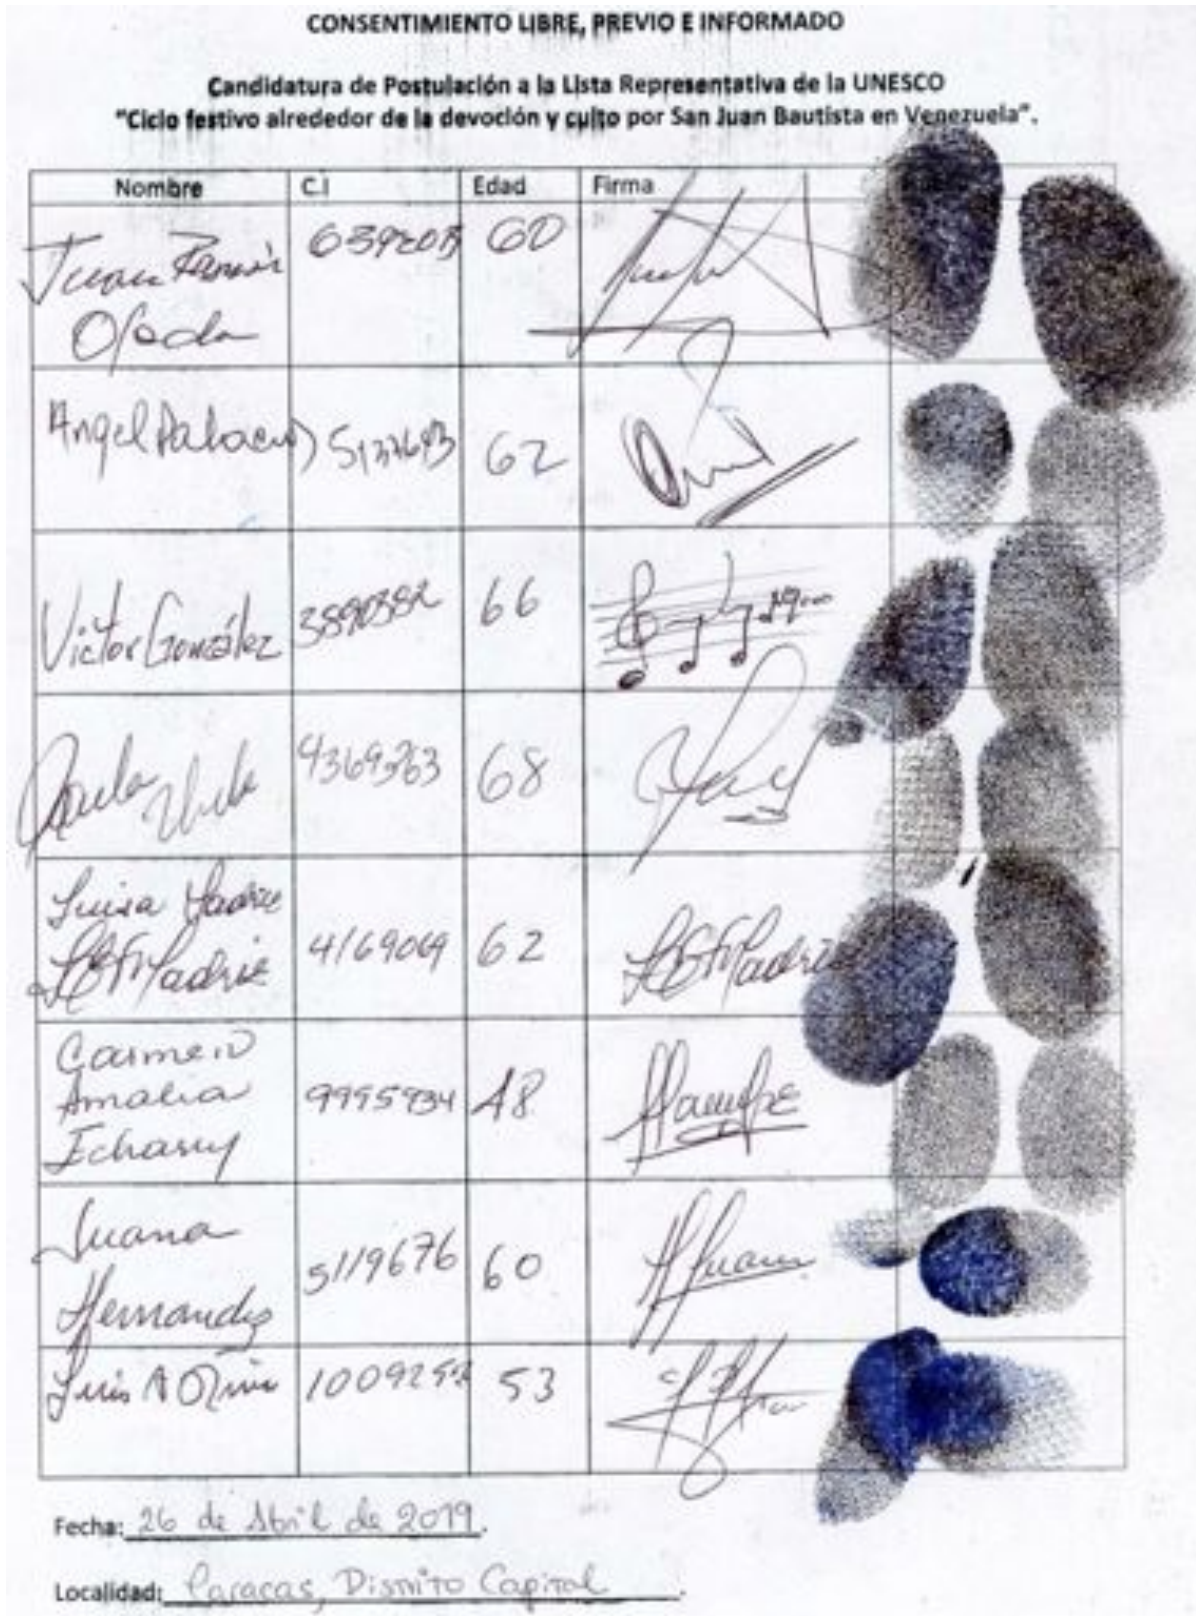 CONSENTIMIENTO LIBRE, PREVIO E INFORMADO
Candidatura de Postulación a la Lista Representativa de la UNESCO
"Ciclo festivo alrededor de la devoción y culto por San Juan Bautista en Venezuela".
Nombre C.I Edad Firma
Juan Ramón 60
Ojeda
Angel Palacios 62
Victor González 3890382 66
68
Luisa Madriz
LETMadriz 4169069 62 LETMadriz
Carmen
Amalia 9995934 48
Juana
Hernandez 5119676 60
Luis A 53
Fecha: 26 de Abril de 2019.
Localidad: Caracas, Distrito Capital.